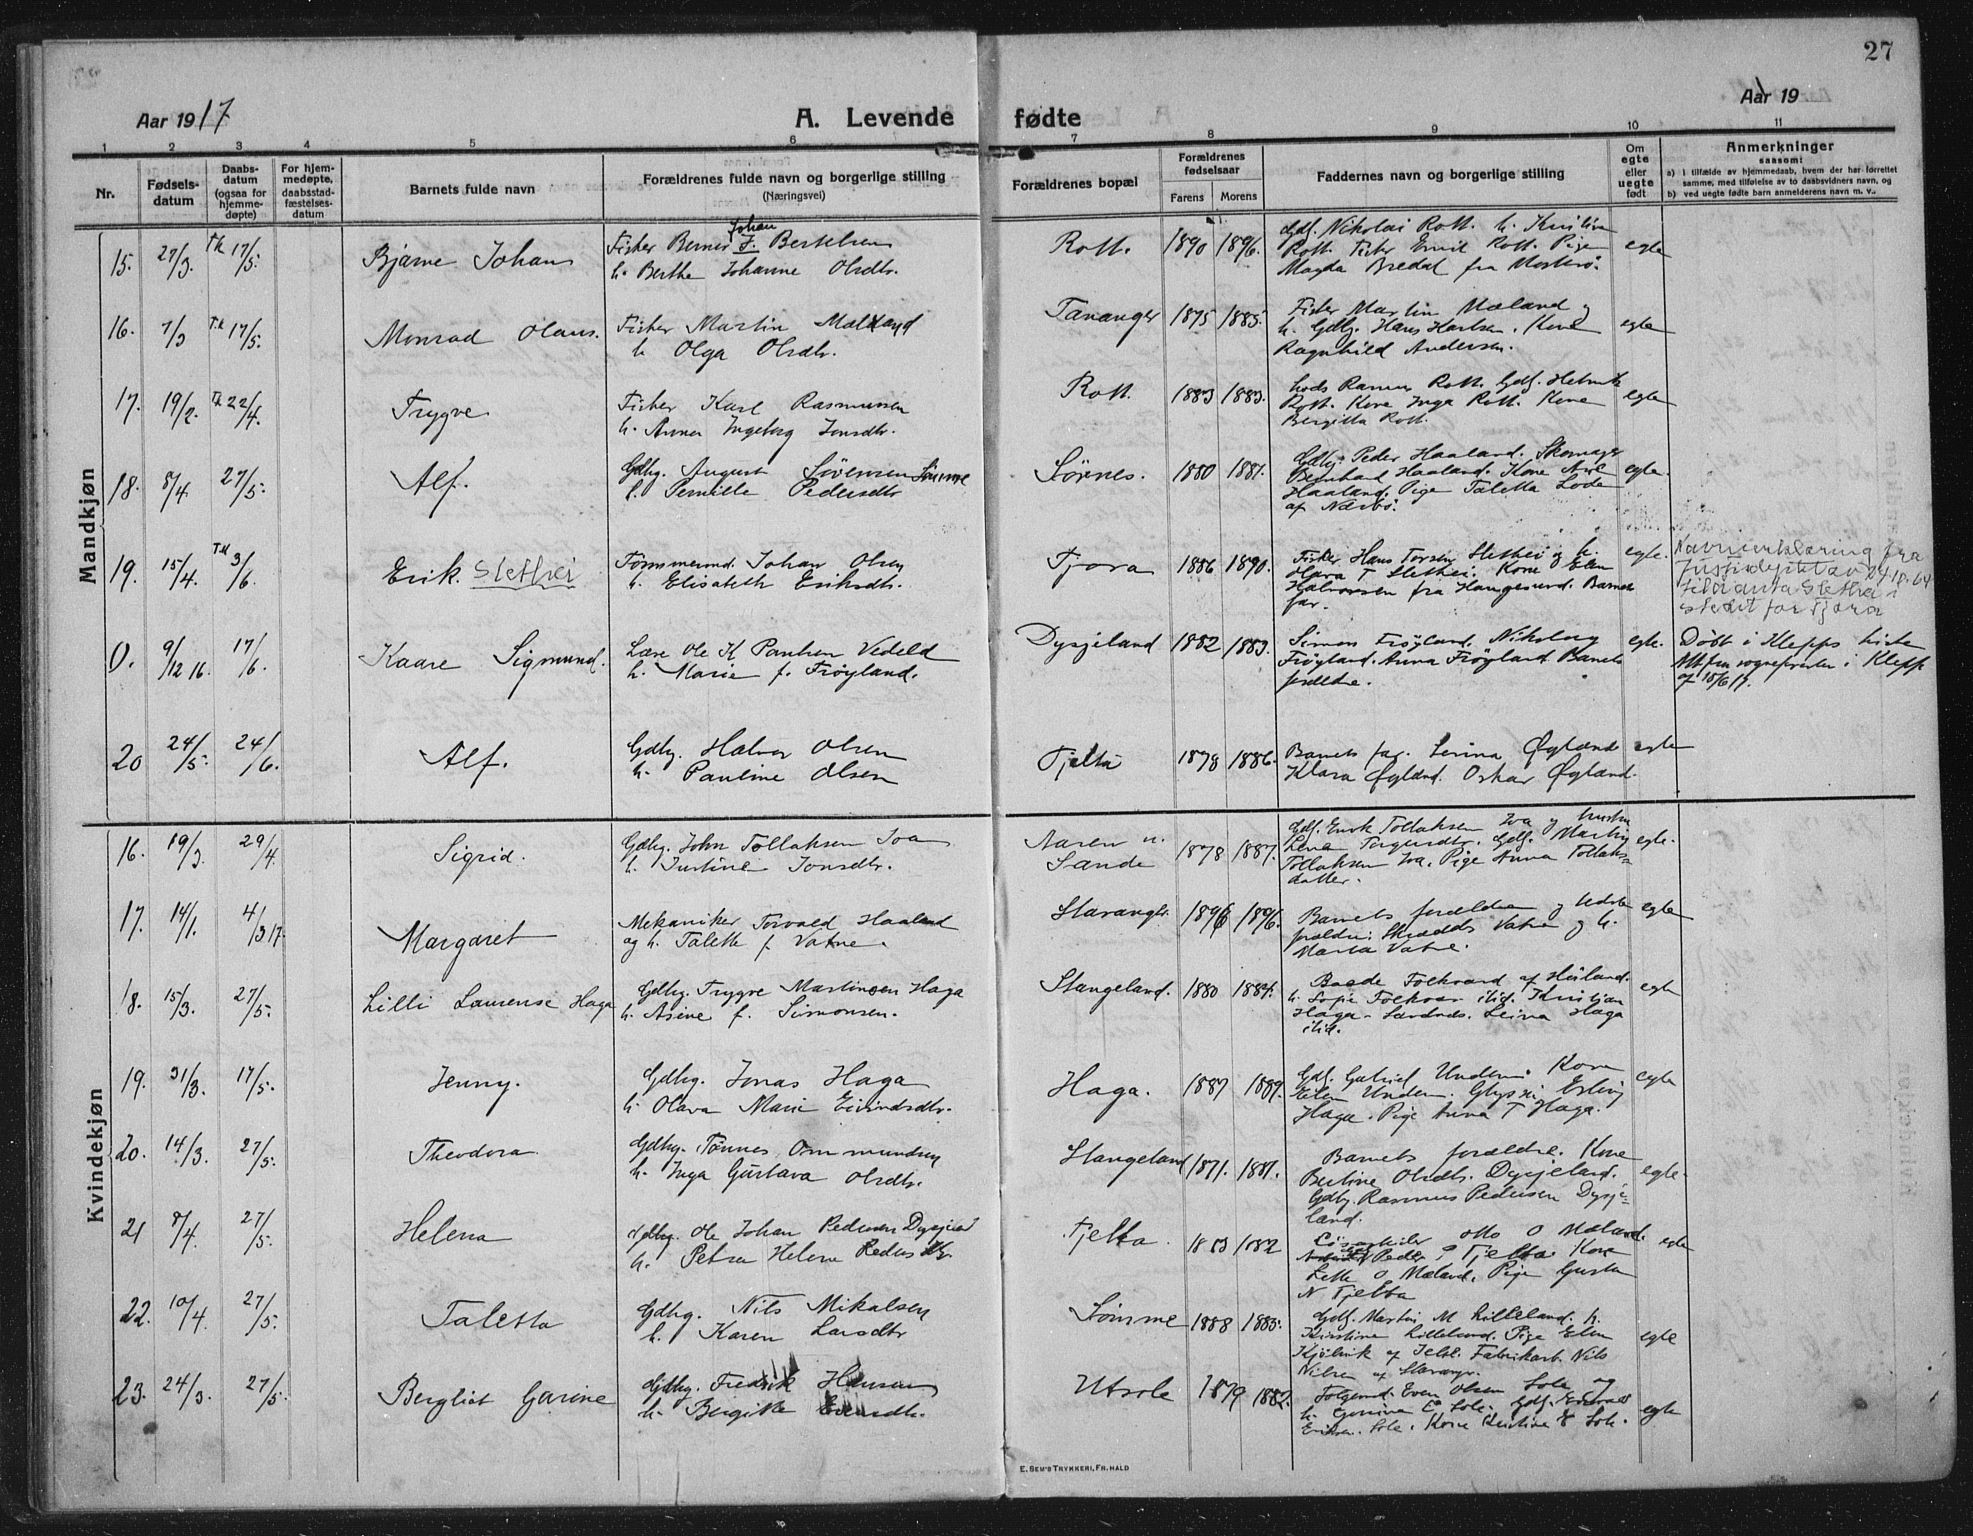 27
Aar 1917
A. Levende fødte
Aar 19
1 2 3 4 5 6 7 8 9 10 11
Nr.
Fødsels-
datum
Daabs-
datum
(ogsaa for
hjemme-
døpte)
For hjem-
medøpte,
daabsstad-
fæstelses-
datum
Barnets fulde navn
Forældrenes fulde navn og borgerlige stilling
(Næringsvei)
Forældrenes bopæl
Forældrenes
fødselsaar
Farens Morens
Faddernes navn og borgerlige stilling
Om
egte
eller
uegte
født
Anmerkninger
saasom:
a) I tilfælde av hjemmedaab, hvem der har forrettet
samme, med tilføielse av to daabsvidners navn, og
b) ved uegte fødte barn anmelderens navn m. v.,
Mandkjøn
15. 27/3. Tk 17/5. Bjarne Johan
Fisker Bernes J. Johan Bertelsen
h. Berthe Johanne Olsdtr.
Rott. 1890 1896.
Gdbr. Nikolai Rott. h. Kristine
Rott. Fisker Emil Rott. Pige
Magda Bredal fra Mosterø.
egte
16. 7/3 Tk 17/5. Monrad Olaus.
Fisker Martin Mæland
h. Olga Olsdtr.
Tananger 1875 1885.
Fisker Martin Mæland og
h. Gdbg. Hans Kone
Ragnhild Andersen.
egte
17. 19/2. Tk 22/4. Trygve
Fisker Karl Rasmussen
h. Anna Ingeborg Jonsdtr.
Rott. 1883 1883.
Lods Rasmus Rott. Gdbg. Henrik
Rott. Kone Inga Rott. Kone
Bergitta Rott.
egte
18. 8/4 27/5. Alf.
Gdbg. August Sørensen Sømme
h. Pernille Pedersdtr
Sørnes. 1880 1881.
Gdbg. Peder Haaland. Skomager
Bernhard Haaland. Kone
Haaland. Pige Taletta Lode
af Nærbø.
egte.
19. 15/4. Tk 3/6. Erik. Slethei
Tømmermd. Johan Olsen
h. Elisabeth Eriksdtr.
Tjora 1886 1890.
Fisker Hans Torsen Slethei og h.
T Slethei. Kone Elen
Halvorsen fra Haugesund. Barnets
far.
egte.
Navneerklæring fra
Justisdept av 24.10.64
til å anta Slethei i
stedet for Tjora
0. 9/12 16. 17/6. Kaare Sigmund.
Lære Ole K Paulsen Vedeld
h. Marie f. Frøyland.
Dysjeland 1882 1883.
Simon Frøyland. Nikolay
Frøyland. Anna Frøyland. Barnets
forældre.
egte.
Døbt i Klepps kirke
Att. fra sognepresten i Klepp
af 15/6 17.
20 24/5. 24/6. Alf.
Gdbg. Halvor Olsen
h. Pauline Olsen
Tjelta 1878 1886.
Barnets far. Serina Øgland
Klara Øgland. Oskar Øgland.
egte
Kvindekjøn
16. 19/3. 29/4. Sigrid.
Gdbg. John Tollaksen Joa
h. Justine Jonsdtr.
Aasen u.
Sande
1878 1887.
Gdbg. Enok Tollaksen Joa og hustru
Lina Torgersdtr. Gdbg. Martin
Tollaksen Joa. Pige Anna Tollaks-
datter.
egte.
17. 14/1. 4/3 17. Margaret
Mekaniker Torvald Haaland
og h. Talette f. Vatne.
Stavanger. 1896 1896.
Barnets forældre og
forældre: Skrædds. Vatne og h.
Marta Vatne.
egte
18. 15/3. 27/5. Lilli Laurense Haga
Gdbg. Trygve Martinsen Haga
h. Asine f. Simonsen.
Stangeland. 1880 1884.
Folkvard af Høiland.
h. Sofie Folkvar ibid. Kristian
Haga. Leina Haga
ibid.
egte
19. 31/3. 17/5. Jenny.
Gdbg. Jonas Haga
h. Olava Marie Eivindsdtr.
Haga. 1887 1889.
Gdbg. Gabriel Undem. Kone
Elen Undem. Gbgs. Erling
Haga. Pige Anna T Haga.
egte
20. 14/3. 27/5. Theodora
Gdbg. Tønnes Ommundsen
h. Inga Gustava Olsdtr.
Stangeland 1871. 1881.
Barnets forældre. Kone
Bertine Olsdtr. Dysjeland.
Gdbg. Rasmus Pedersen Dysje-
land.
egte.
21 8/4. 27/5. Helena
Gdbg. Ole Johan Pedersen Dysjeland
h. Petra Helene Pedersdtr.
Tjelta. 1883 1882
Otto O Mæland.
Peder Tjelta. Kone
Lette O Mæland. Pige Gusta
N Tjelta
egte
22. 10/4. 27/5. Taletta
Gdbg. Nils Mikalsen
h. Karen Larsdtr
Sømme 1888 1885.
Gdbg. Martin M Lilleland. h.
Kirstine Lilleland. Pige Elen
Kjølvik af Jelse. Fabrikarb. Nils
Nilsen af Stavanger.
egte
23. 24/3. 27/5. Bergliot Garine
Gdbg. Fredrik Hansen
h. Bergitte
Utsole 1879 1882.
Even Olsen Sole og
h. Sole. Gdbg.
Eriksen. Sole. Kone Kristine E Sole.
egte
E. SEM'S TRYKKERI, FR.HALD